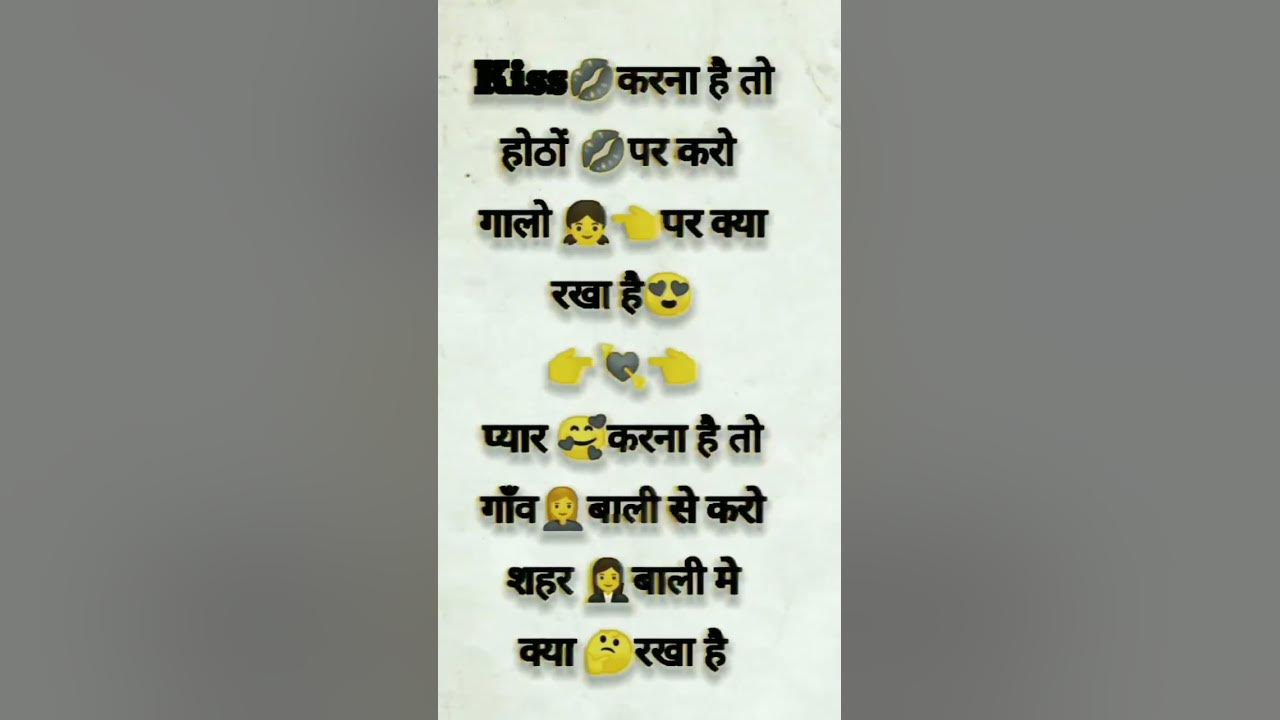 Kiss💋करना है तो
होठों 💋पर करो
गालो 👧👈पर क्या
रखा है😍
👉💘👈
प्यार 🥰करना है तो
गाँव👩‍💼बाली से करो
शहर 👩‍💼बाली मे
क्या 🤔रखा है